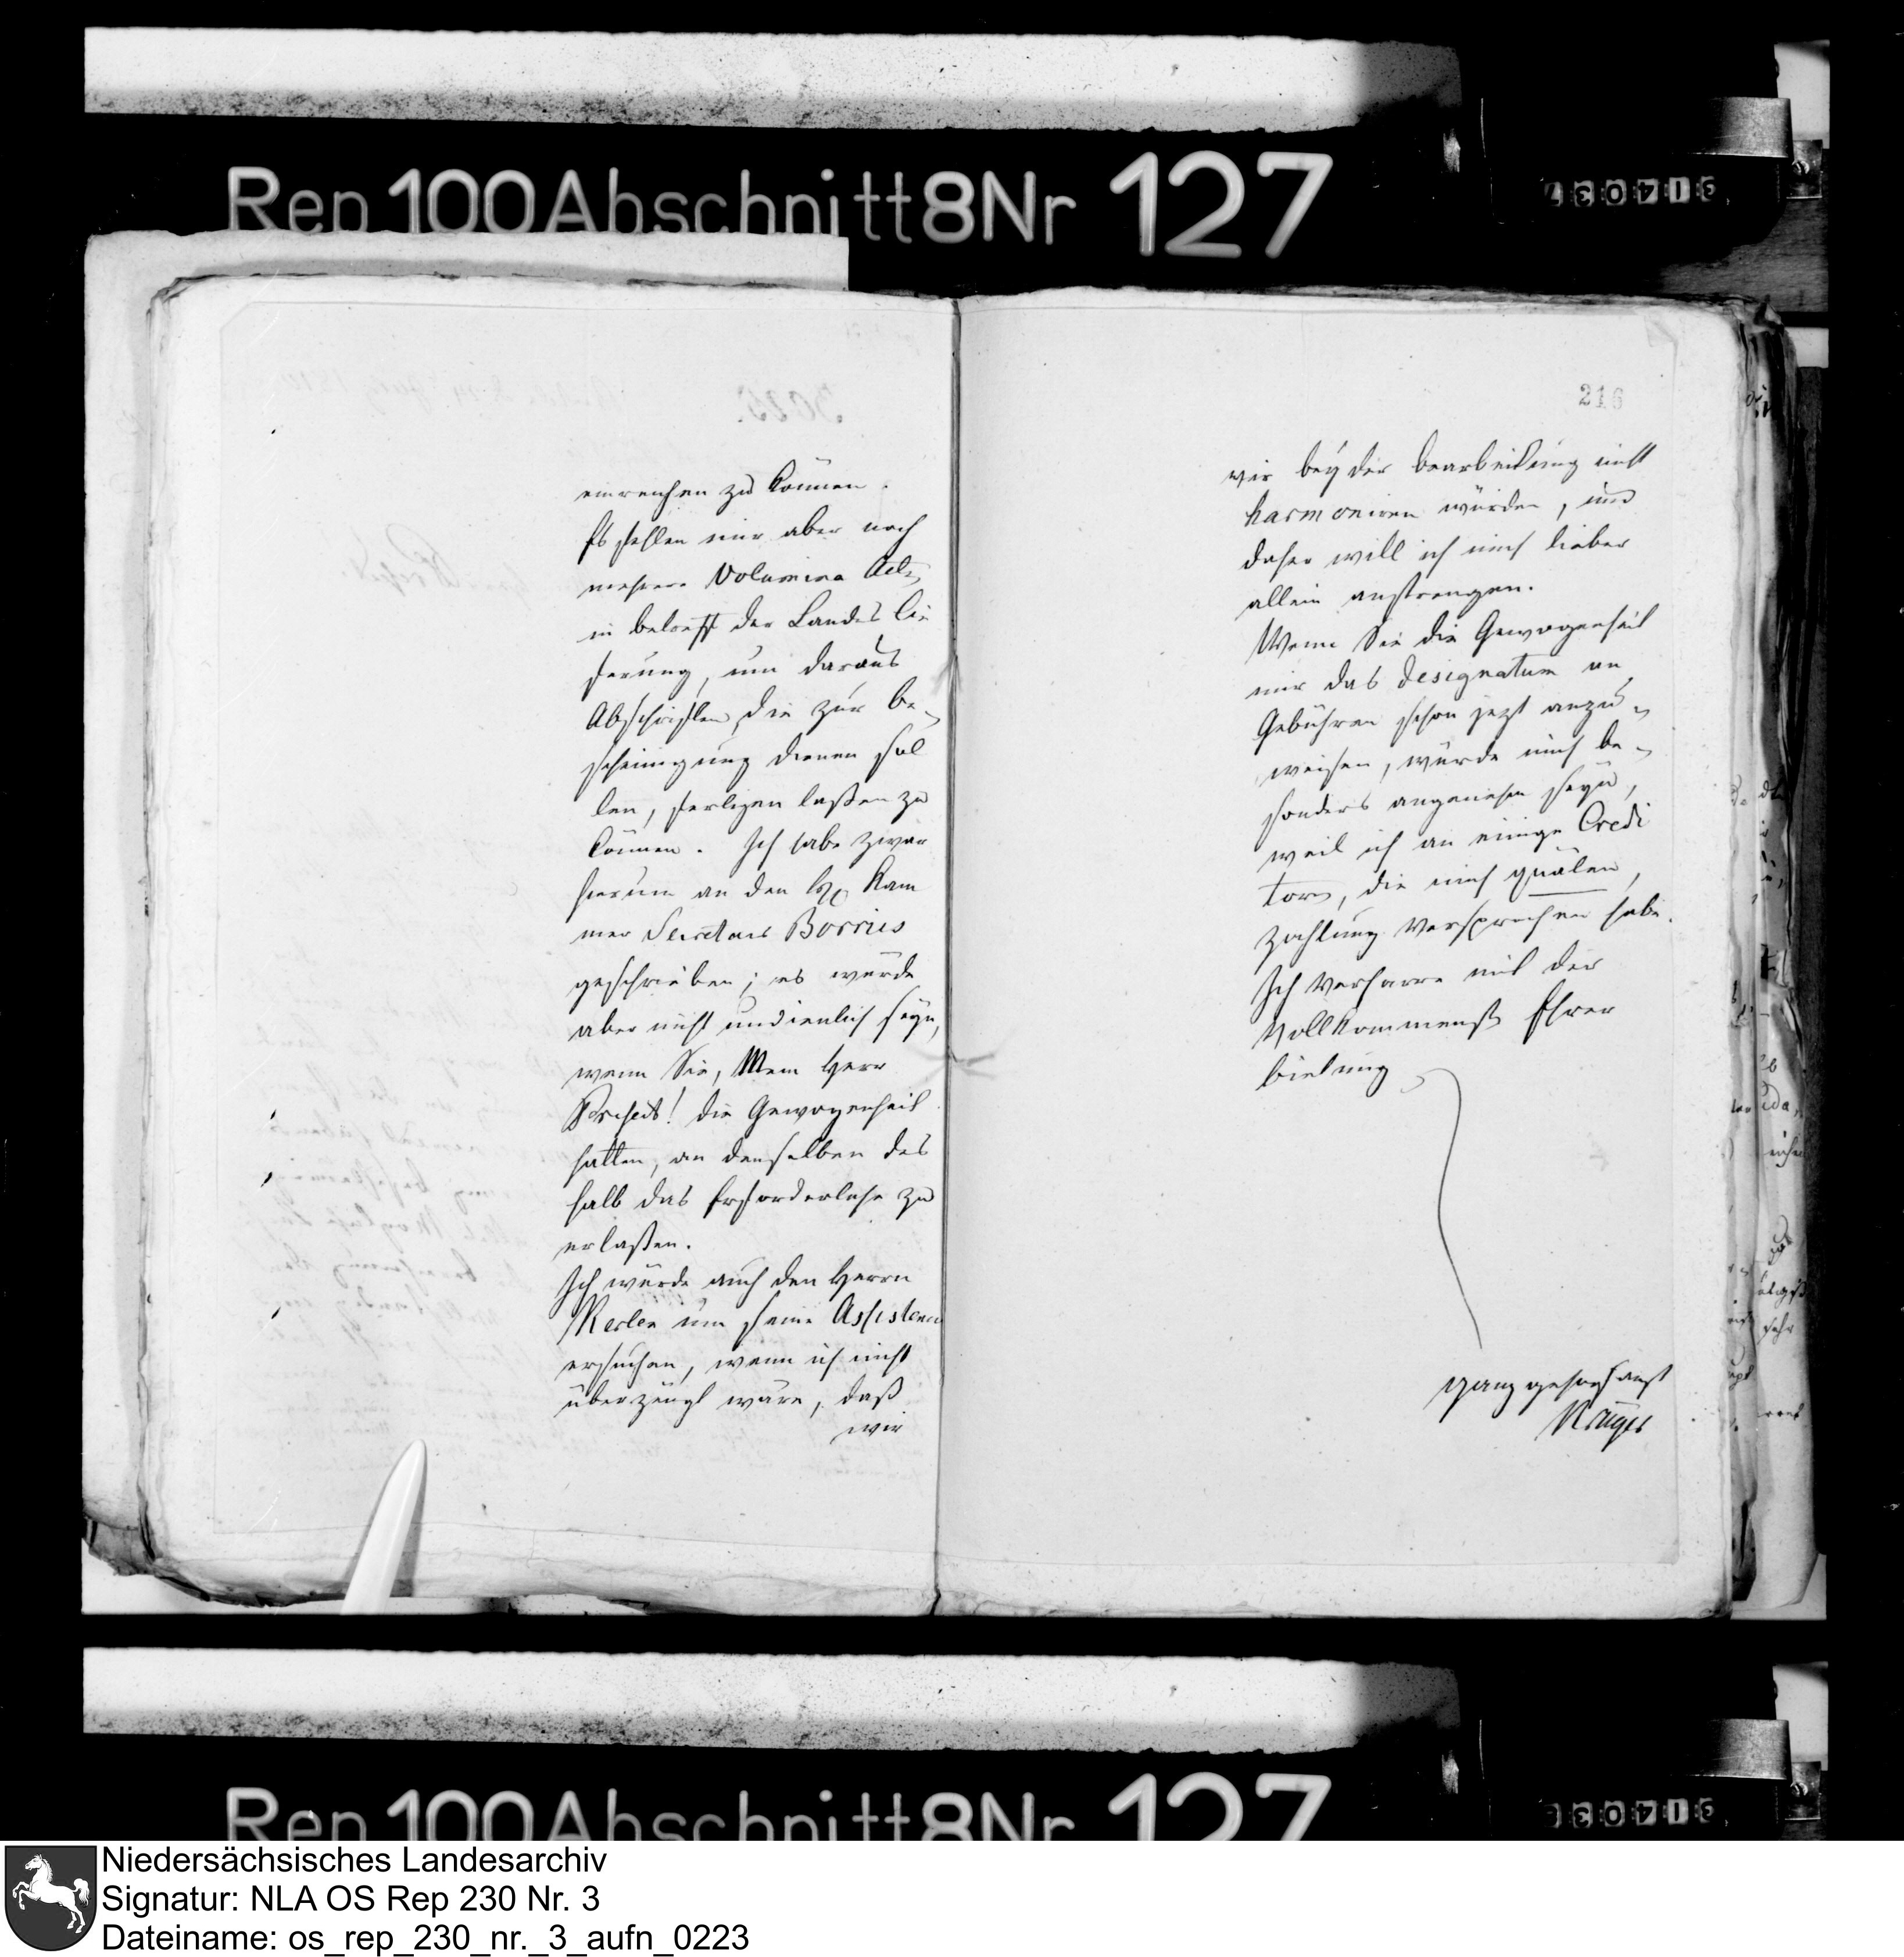 Rep 100 Abschnitt 8 Nr 127
einreichen zu können.
Es fehlen mir aber noch
mehrere Volumina Act.
in betreff der Landes Lie
ferung, um daraus
Abschriften, die zur Be-
scheinigung dienen sol
len, fertigen laßen zu
können. Ich habe zwar
hierum an den H. Kam
mer Secretair Borries
geschrieben; es würde
aber nicht undienlich seyn,
wenn Sie, Mein Herr
Prefect! die Gewogenheit
hätten, an denselben des
halb das Erforderliche zu
erlaßen.
Ich würde auch den Herrn
um seine Assistence
ersuchen, wenn ich nicht
überzeugt wäre, daß
wir
216
wir bey der Bearbeitung nicht
harmoniren würden, und
daher will ich mich lieber
allein anstrengen.
Wenn Sie die Gewogenheit
mir das designatum an
Gebühren schon jezt anzu-
weisen, würde mich be-
sonders angenehm seyn,
weil ich an einige Credi
tores, die mich quälen,
Zahlung versprochen habe.
Ich verharre mit der
Vollkommensten Ehrer
bietung
ganz gehorsamst
Krüger
Rep 100 Abschnitt 8 Nr 127
Niedersächsisches Landesarchiv
Signatur: NLA OS Rep 230 Nr. 3
Dateiname: os_rep_230_nr._3_aufn_0223